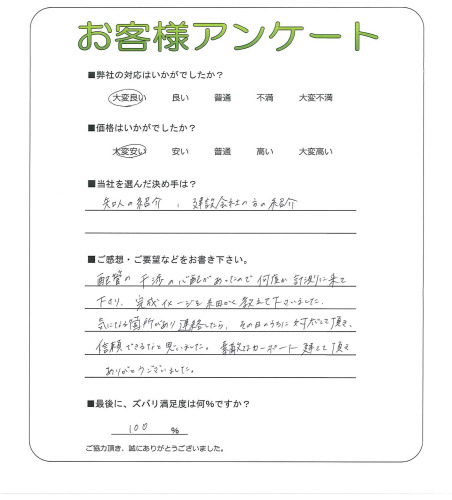 お客様アンケート
■弊社の対応はいかがでしたか？
大変良い 良い 普通 不満 大変不満
■価格はいかがでしたか？
大変安い 安い 普通 高い 大変高い
■当社を選んだ決め手は？
知人の紹介 ; 建設会社の方の紹介
■ご感想・ご要望などをお書き下さい。
配管の干渉の心配があったので何度か計測に来て
下さり、完成イメージを細かく教えて下さいました。
気になる箇所があり連絡したら、その日のうちに対応して頂き、
信頼できるなと思いました。素敵なカーポート建てて頂き
ありがとうございました。
■最後に、ズバリ満足度は何％ですか？
100 ％
ご協力頂き、誠にありがとうございました。